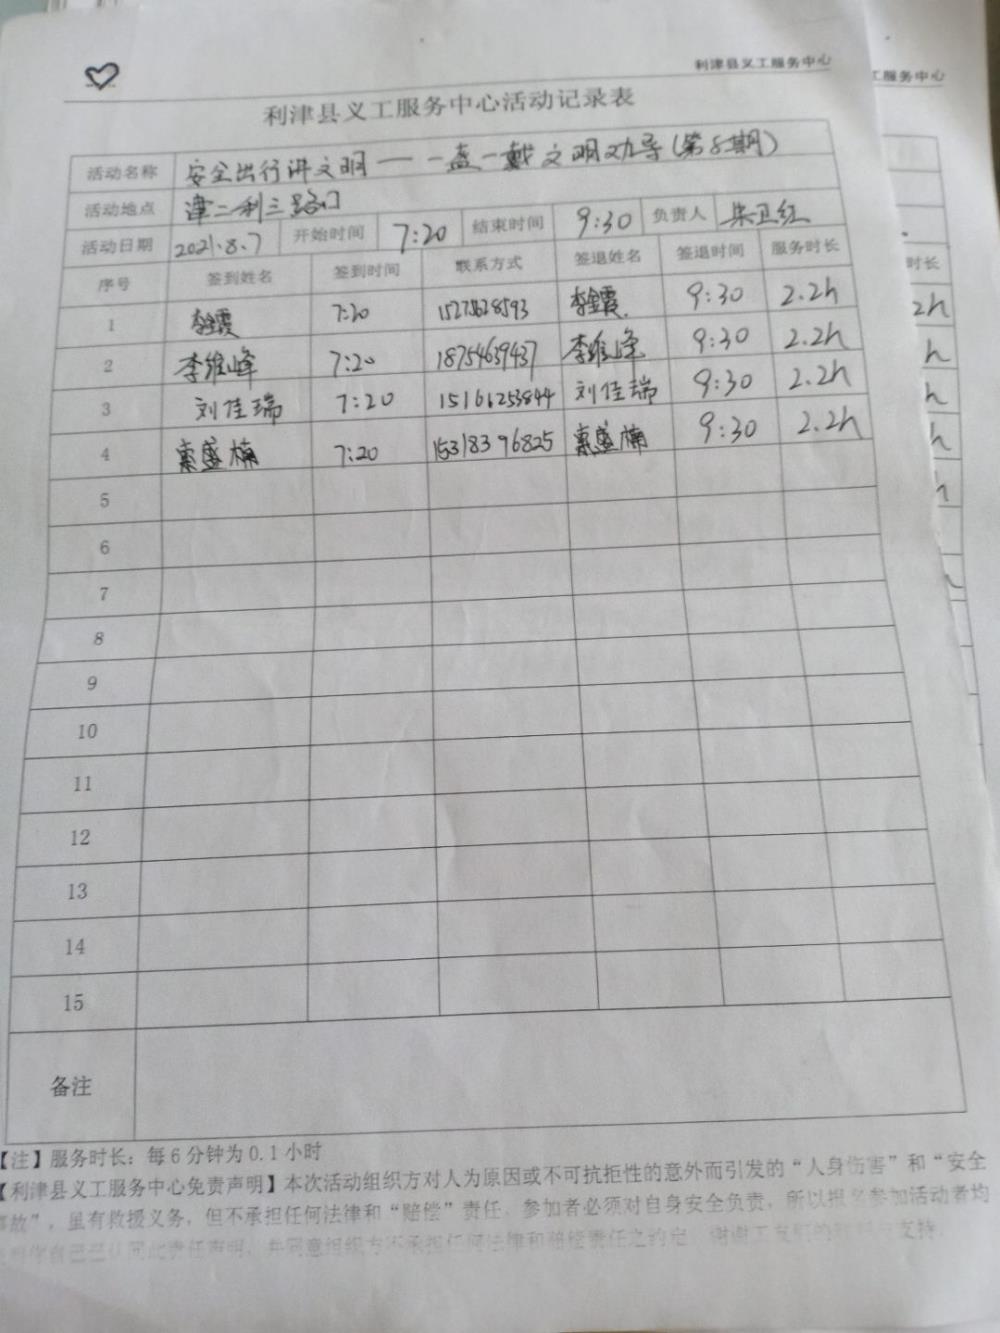 利津县义工服务中心
工服务中心
利津县义工服务中心活动记录表
活动名称 安全出行讲文明——一盔一戴文明劝导(第8期)
活动地点 津二利三路口
活动日期 2021.8.7 开始时间 7:20 结束时间 9:30 负责人 朱卫红
序号 签到姓名 签到时间 联系方式 签退姓名 签退时间 服务时长
时长
1 7:20 9:30 2.2h
2h
2 李维峰 7:20 18754639437 李维峰 9:30 2.2h
h
3 刘佳瑞 7:20 15161253844 刘佳瑞 9:30 2.2h
h
4 7:20 15318396825 9:30 2.2h
h
5
h
6
7
8
9
10
11
12
13
14
15
备注
【注】服务时长：每6分钟为0.1小时
【利津县义工服务中心免责声明】本次活动组织方对人为原因或不可抗拒性的意外而引发的“人身伤害”和“安全
事故”，虽有救援义务，但不承担任何法律和“赔偿”责任。参加者必须对自身安全负责，所以报名参加活动者均
认同此责任声明，并同意组织方不承担任何法律和赔偿责任之约定。谢谢 支持。